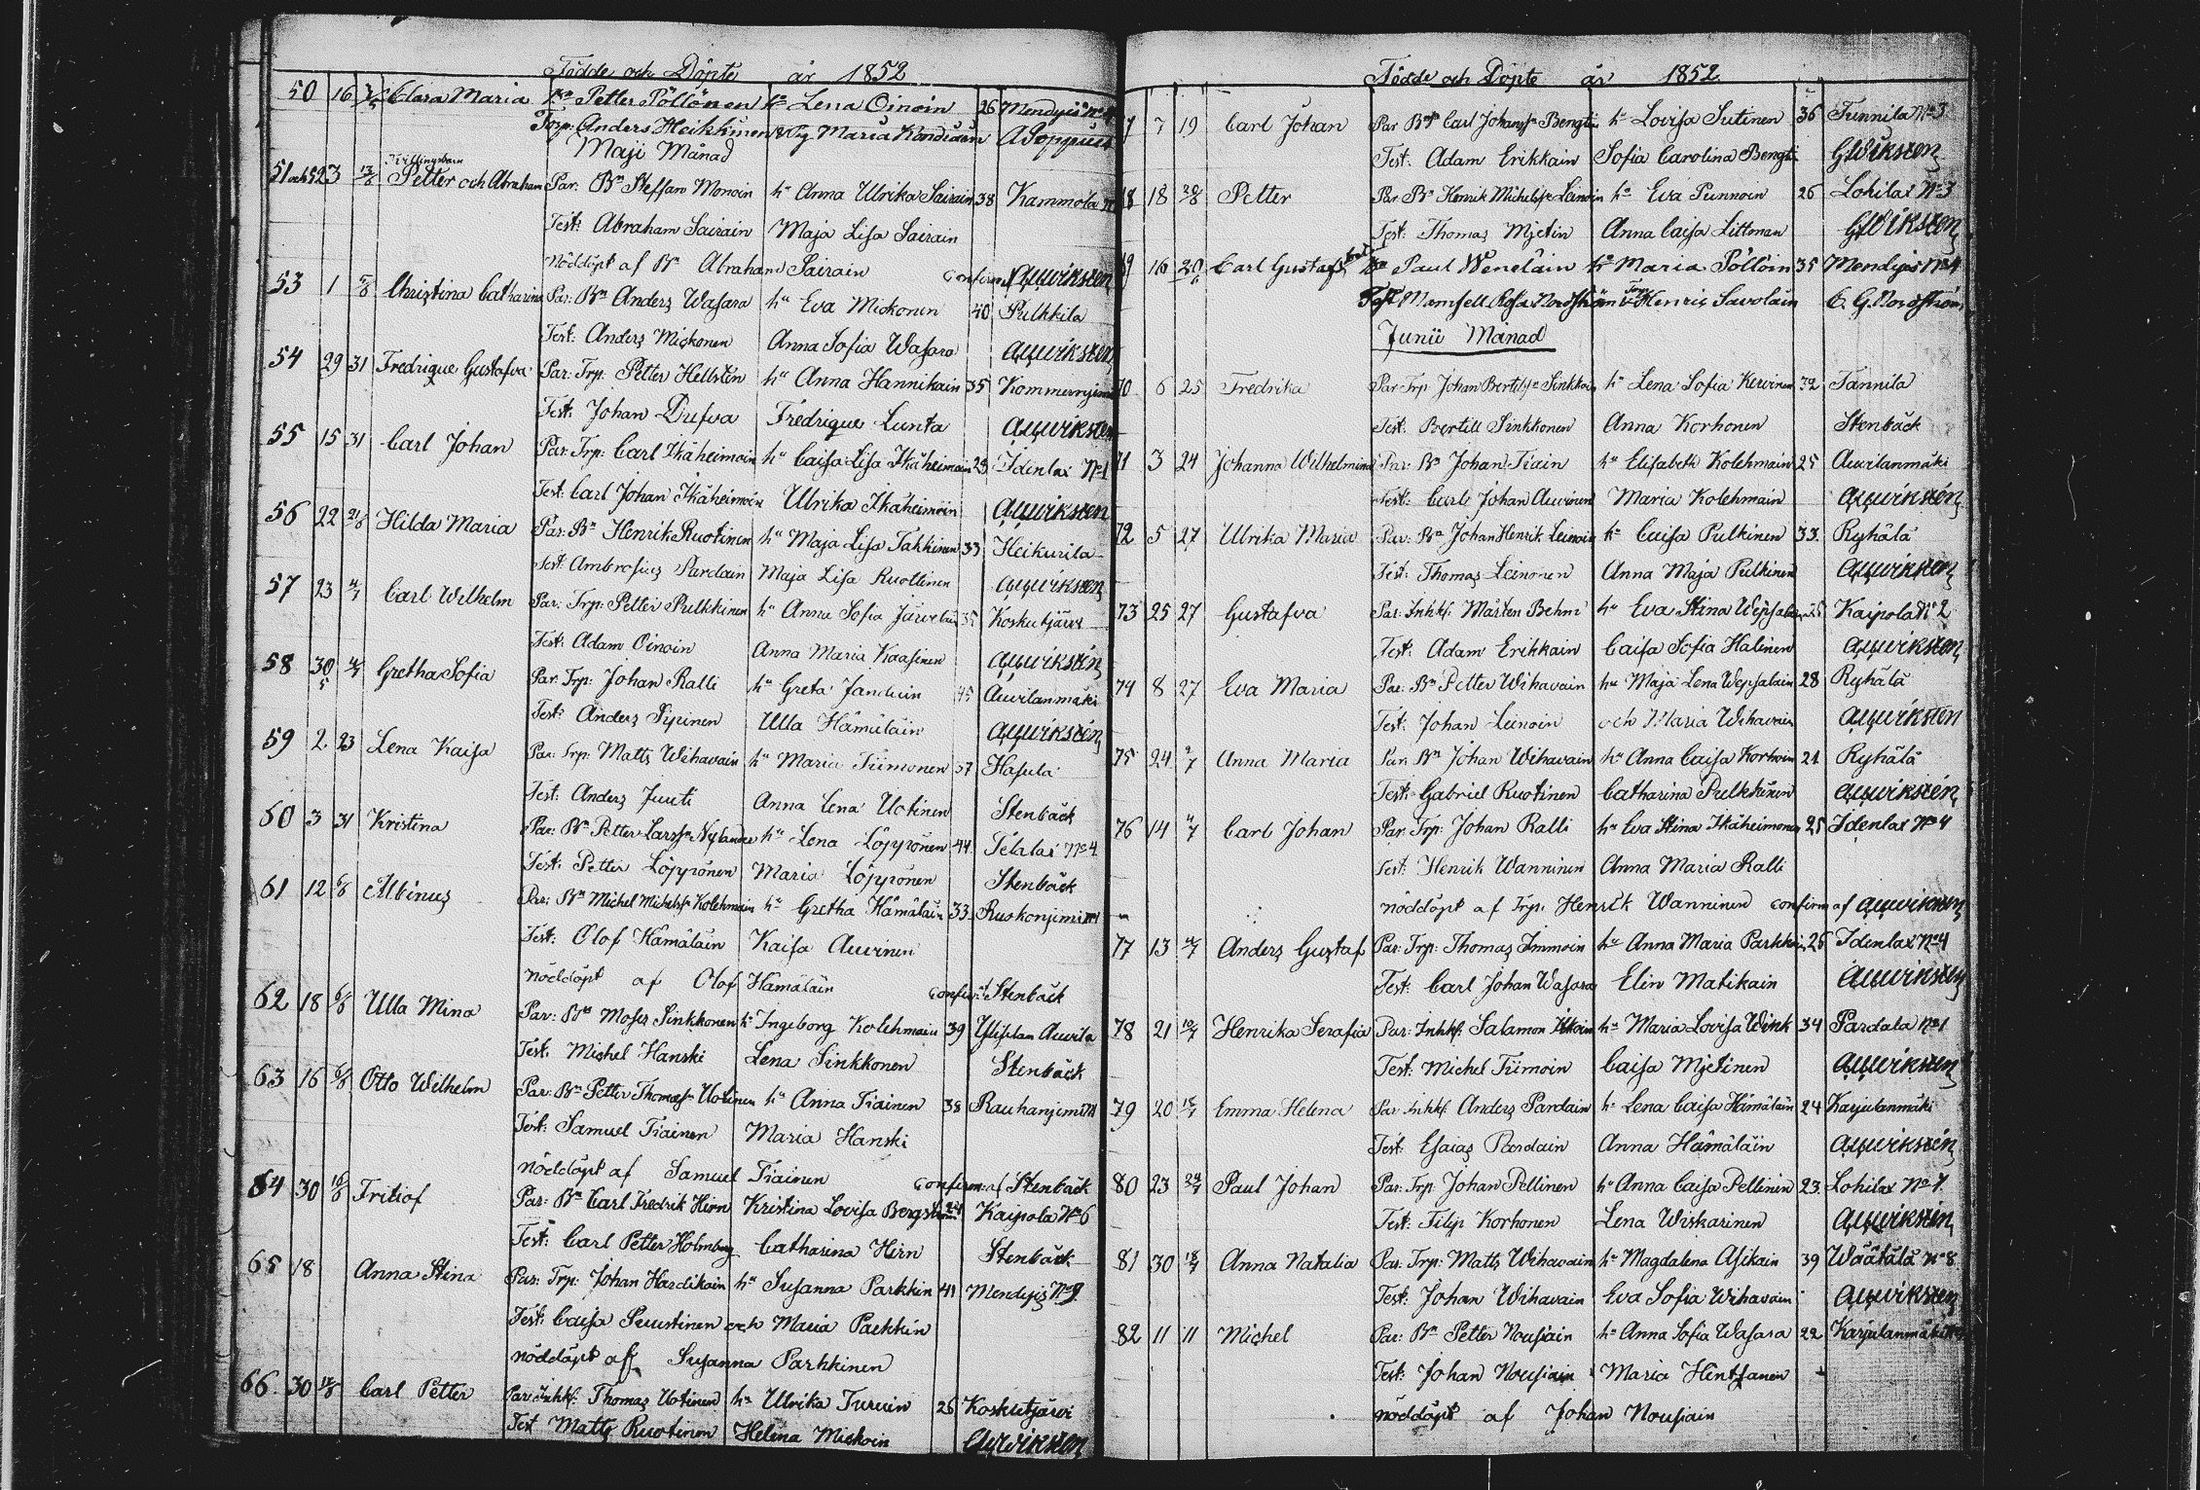 Födde och Döpte år 1852
50 16 Clara Maria Petter Pöllönen hu Lena Oinoin 26 Mendyis No 4
Torp: Anders Heikkinen Maria A Soppuus
Maji Månad
51 och 52 3 Tvillingebarn Petter och Abraham Par: Bn Steffan Monoin hu Anna Ulrika Sairain 38 Kammola
Test: Abraham Sairain Maja Lisa Sairain
Nöddöpt af Bn Abraham Sairain confirm: Auvikstén
53 1 Christina Catharina Par: Bn Anders Wasara hu Eva Miskonen 40 Pulkkila
Test: Anders Miskonen Anna Sofia Wasara Auvikstén
54 29 31 Fredrique Gustafva Par: Trp: Petter Hellstén hu Anna Hannikain 35 Kommerrniemi
Test: Johan Dufva Fredrique Lunta Auvikstén
55 15 31 Carl Johan Par: Trp: Carl Ikäheimoin hu Caisa Lisa Ikäheimoin 29 Idenlax No 1
Test: Carl Johan Ikäheimoin Ulrika Ikäheimoin Auvikstén
56 22 Hilda Maria Par: Bn Henrik Ruotinen hu Maja Lisa Takkinen 33 Heikurila
Test: Ambrosius Pardain Maja Lisa Ruotinen Auvikstén
57 23 Carl Wilhelm Par: Trp: Petter Pulkkinen hu Anna Sofia Järveläin 35 Koskutjärvi
Test: Adam Oinoin Anna Maria Kaasinen Auvikstén
58 30 5 Gretha Sofia Par: Trp: Johan Ralli hu Greta Janduin 45 Auvilanmäki
Test: Anders Sipinen Ulla Hämäläin Auvikstén
59 2 23 Lena Kaisa Par: Trp: Matts Wihavain hu Maria Tiimonen 37 Hasula
Test: Anders Juuti Anna Lena Uotinen Stenbäck
60 3 31 Kristina Par: Bn Petter Larss. Nylander hu Lena Löppönen 44 Telalax No 4
Test: Petter Löppönen Maria Löppönen Stenbäck
61 12 6/8 Albinus Par: Bn Michel Michelss. Kolehmain hu Gretha Hämäläin 33 Ruskonjimi
Test: Olof Hämäläin Kaisa Auvinen
nöddöpt af Olof Hämäläin confirm: Stenbäck
62 18 6/8 Ulla Mina Par: Bn Moses Sinkkonen hu Ingeborg Kolehmain 39 Auvila
Test: Michel Hanski Lena Sinkkonen Stenbäck
63 16 6/8 Otto Wilhelm Par: Bn Petter Thomass. Uotinen hu Anna Tiainen 38 Rauhanjimi
Test: Samuel Tiainen Maria Hanski
nöddöpt af Samuel Tiainen confirm: af Stenbäck
64 30 Fritiof Par: Bn Carl Fredrik Hirn Kristina Lovisa Bergström Kaipola No 6
Test: Carl Petter Holmberg Catharina Hirn Stenbäck
65 18 Anna Stina Par: Trp: Johan Hardikain hu Susanna Parkkin 41 Mendyis No 9
Test: Caisa Puustinen och Maria Parkkin
nöddöpt af Susanna Parkkinen
66 30 Carl Petter Par: Inhks. Thomas Uotinen hu Ulrika Turuin 26 Koskutjärvi
Test Matts Ruotinen Helena Miskoin Auvikstén
Födde och Döpte år 1852
7 19 Carl Johan Par Bn Carl Johanss. Bengts hu Lovisa Sutinen 36 Tunnila No 3
Test: Adam Erikkain Sofia Carolina Bengts GWikstén
18 Petter Par Bn Henrik Michelss. Leinoin hu Eva Punnoin 26 Lohilax No 3
Test: Thomas Mjetin Anna Caisa Littman GWikstén
16 Carl Gustaf Paul Wenelain hu Maria Pöllöin 35 Mendyis No 4
Test Mamsell Rosa Nordström Henric Savolain C. G. Nordström
Junii Månad
70 6 25 Fredrika Par Trp: Johan Bertilss. Sinkkoin hu Lena Sofia Kervinen 32 Tannila
Test: Bertill Sinkkonen Anna Korhonen Stenbäck
71 3 24 Johanna Wilhelmina Par: Bn Johan Tiain hu Elisabeth Kolehmain 25 Auvilanmäki
Test: Carl Johan Auvinen Maria Kolehmain Auvikstén
72 5 27 Ulrika Maria Par: Bn Johan Henrik Leinoin hu Caisa Pulkinen 33 Ryhälä
Test: Thomas Leinonen Anna Maja Pulkinen Auvikstén
73 25 27 Gustafva Par: Inhks. Mårten Behm hu Eva Stina Wepsäläin 25 Kaipola No 2
Test: Adam Erikkain Caisa Sofia Halinen Auvikstén
74 8 27 Eva Maria Par: Bn Petter Wihavain hu Maja Lena Wepsäläin 28 Ryhälä
Test: Johan Leinoin och Maria Wihavain Auvikstén
75 24 Anna Maria Par: Bn Johan Wihavain hu Anna Caisa Korhoin 21 Ryhälä
Test: Gabriel Ruotinen Catharina Pulkkinen Auvikstén
76 14 Carl Johan Par: Trp: Johan Ralli hu Eva Stina Ikäheimonen 25 Idenlax No 4
Test: Henrik Wanninen Anna Maria Ralli
nöddöpt af Trp: Henrik Wanninen confirm af Auvikstén
77 13 Anders Gustaf Par: Trp: Thomas Immoin hu Anna Maria Parkkin 26 Idenlax No 4
Test: Carl Johan Wasara Elin Matikain Auvikstén
78 21 Henrika Serafia Par: Inhks. Salamon hu Maria Lovisa Wink 34 Pardala No 1
Test: Michel Tiimoin Caisa Mjetinen Auvikstén
79 20 Emma Helena Par: Inhks. Anders Pardain hu Lena Caisa Hämäläin 24 Karjulanmäki
Test: Esaias Pardain Anna Hämäläin Auvikstén
80 23 Paul Johan Par: Trp: Johan Pellinen hu Anna Caisa Pellinen 23 Lohilax No 7
Test: Filip Korhonen Lena Wiskarinen Auvikstén
81 30 18/7 Anna Natalia Par: Trp: Matts Wihavain hu Magdalena Asikain 39 Wäätälä No 8
Test: Johan Wihavain Eva Sofia Wihavain Auvikstén
82 11 11 Michel Par: Bn Petter Nousiain hu Anna Sofia Wasara 22 Karjulanmäki
Test: Johan Nousiain Maria Hentzanen
nöddöpt af Johan Nousiain